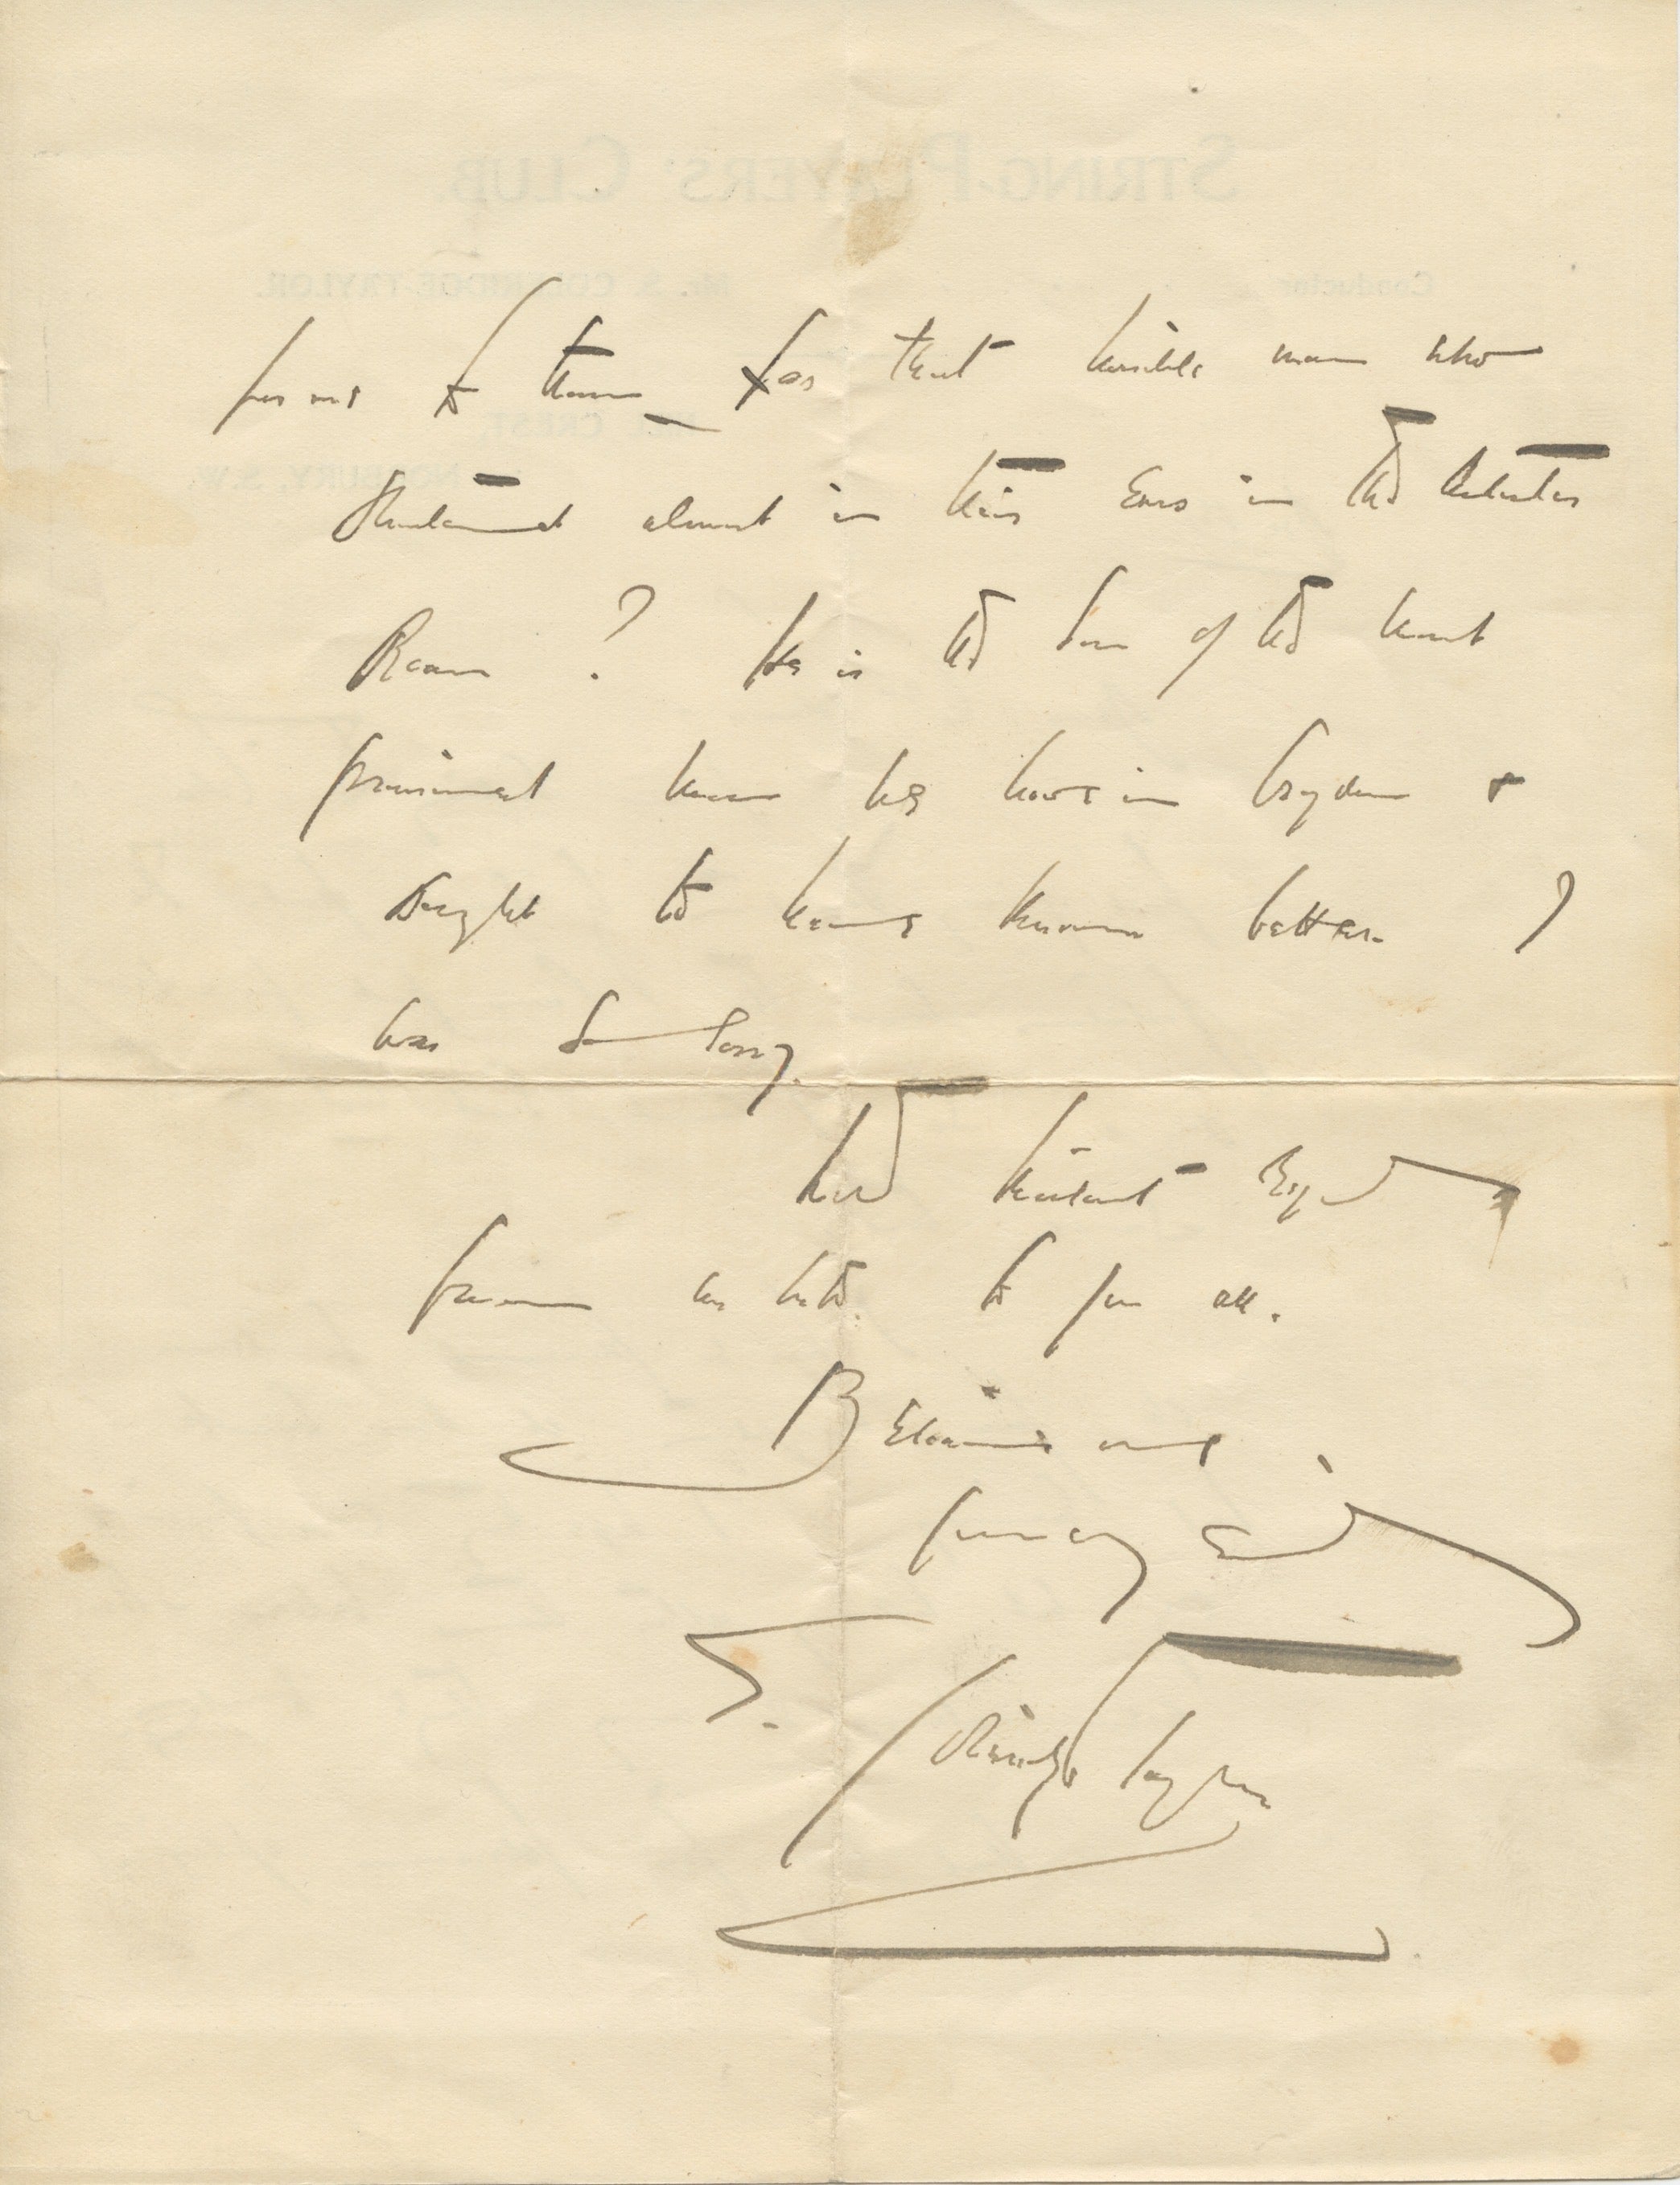 STRING PLAYERS' CLUB.
Conductor Mr. S. COLERIDGE TAYLOR.
CREST,
NORBURY, S.W.
for me to them for that horrible man who
almost in their Ears in the
Room ? He is the Son of the most
prominent man we have in Croydon &
ought to have known better. I
was so sorry.
With kindest Regards
from us both to you all.
Believe me
yours very Sincerely
S. Coleridge Taylor